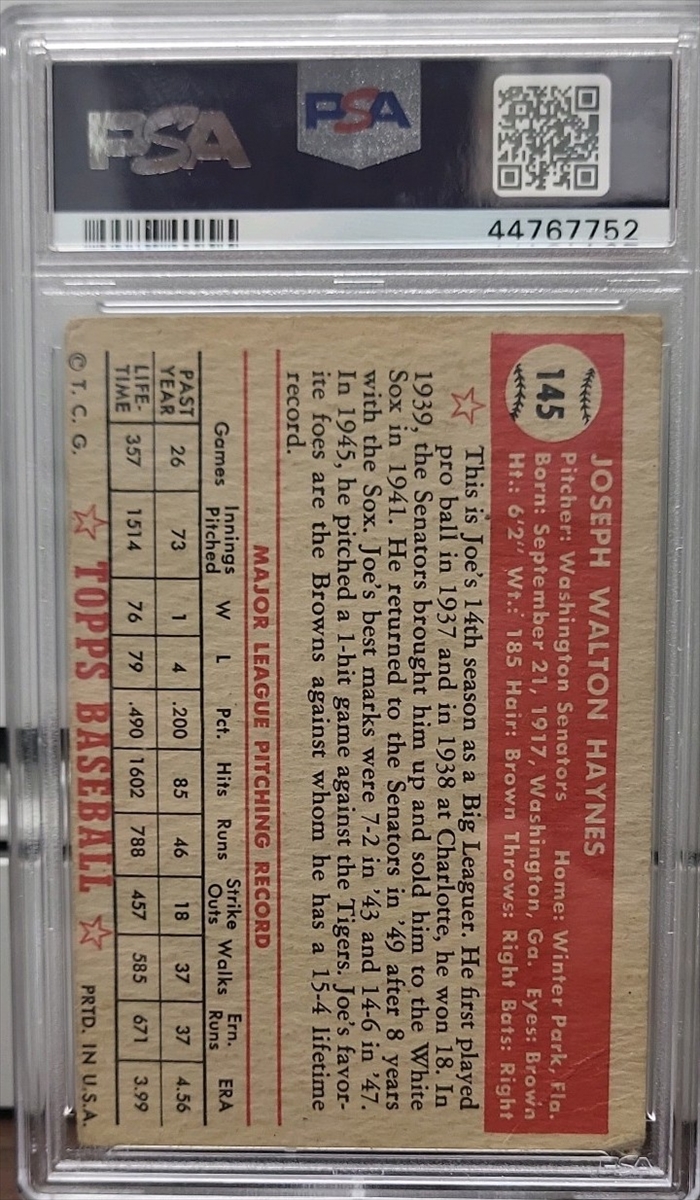 PSA
PSA
44767752
145
JOSEPH WALTON HAYNES
Pitcher: Washington Senators Home: Winter Park, Fla.
Born: September 21, 1917, Washington, Ga. Eyes: Brown
Ht.: 6'2" Wt.: 185 Hair: Brown Throws: Right Bats: Right
This is Joe's 14th season as a Big Leaguer. He first played
pro ball in 1937 and in 1938 at Charlotte, he won 18. In
1939, the Senators brought him up and sold him to the White
Sox in 1941. He returned to the Senators in '49 after 8 years
with the Sox. Joe's best marks were 7-2 in '43 and 14-6 in '47.
In 1945, he pitched a 1-hit game against the Tigers. Joe's favor-
ite foes are the Browns against whom he has a 15-4 lifetime
record.
MAJOR LEAGUE PITCHING RECORD
Games Innings Pitched W L Pct. Hits Runs Strike Outs Walks Ern. Runs ERA
PAST YEAR 26 73 1 4 .200 85 46 18 37 37 4.56
LIFE-TIME 357 1514 76 79 .490 1602 788 457 585 671 3.99
© T. C. G. TOPPS BASEBALL PRTD. IN U.S.A.
PSA